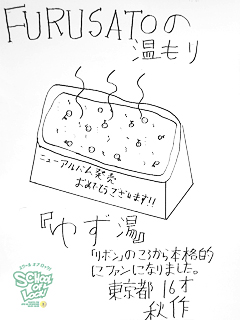 FURUSATOの
温もり
ニューアルバム発売
おめでとうございます!!
『ゆず湯』
「リボン」のころから本格的
にファンになりました。
東京都 16才
秋作
SCHOOL
OF
LOCK!